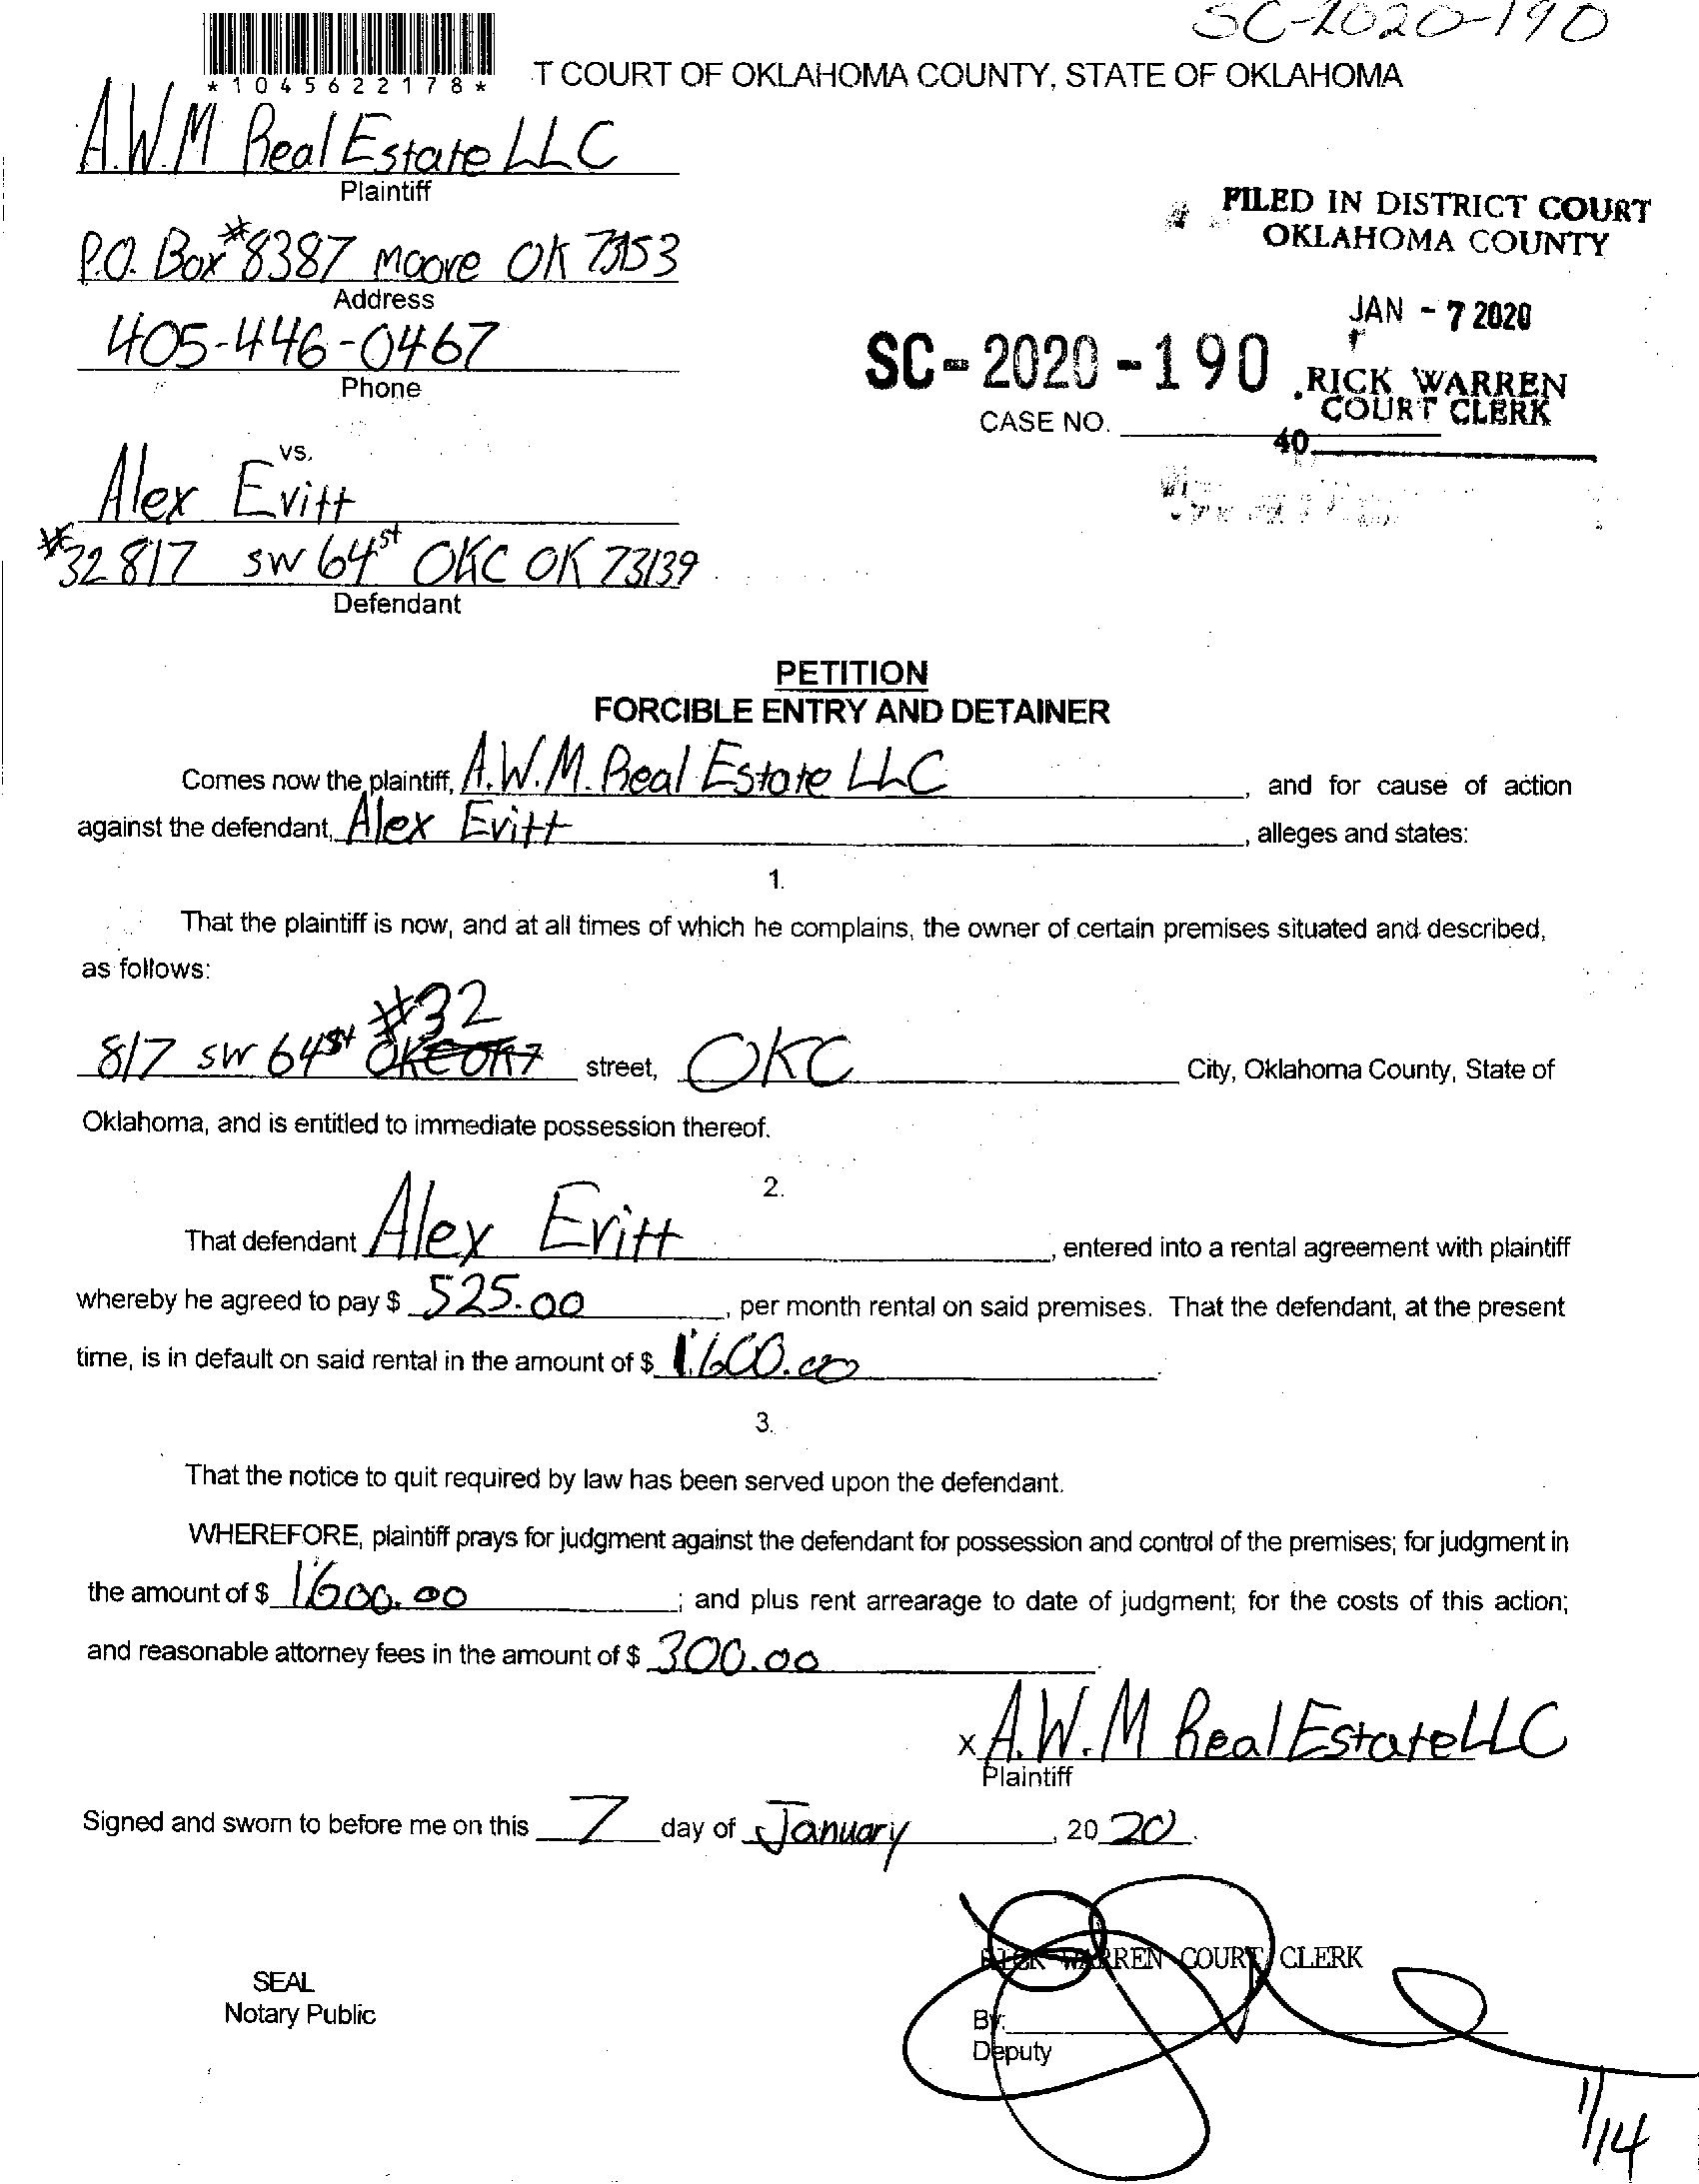 SC-2020-190
*1045622178*
T COURT OF OKLAHOMA COUNTY, STATE OF OKLAHOMA
A.W.M Real Estate LLC
Plaintiff
FILED IN DISTRICT COURT
OKLAHOMA COUNTY
P.O. Box #8387 Moore OK 73153
Address
JAN - 7 2020
405-446-0467
Phone
SC-2020-190
RICK WARREN
COURT CLERK
CASE NO.
40
vs.
Alex Evitt
#32 817 SW 64st OKC OK 73139
Defendant
PETITION
FORCIBLE ENTRY AND DETAINER
Comes now the plaintiff, A.W.M. Real Estate LLC, and for cause of action
against the defendant, Alex Evitt, alleges and states:
1.
That the plaintiff is now, and at all times of which he complains, the owner of certain premises situated and described,
as follows:
#32
817 SW 64st street, OKC City, Oklahoma County, State of
Oklahoma, and is entitled to immediate possession thereof.
2.
That defendant Alex Evitt, entered into a rental agreement with plaintiff
whereby he agreed to pay $ 525.00, per month rental on said premises. That the defendant, at the present
time, is in default on said rental in the amount of $ 1'600.00.
3.
That the notice to quit required by law has been served upon the defendant.
WHEREFORE, plaintiff prays for judgment against the defendant for possession and control of the premises; for judgment in
the amount of $ 1'600.00; and plus rent arrearage to date of judgment; for the costs of this action;
and reasonable attorney fees in the amount of $ 300.00.
x A.W.M Real Estate LLC
Plaintiff
Signed and sworn to before me on this 7 day of January, 20 20.
RICK WARREN COURT CLERK
SEAL
Notary Public
By:
Deputy
1/14